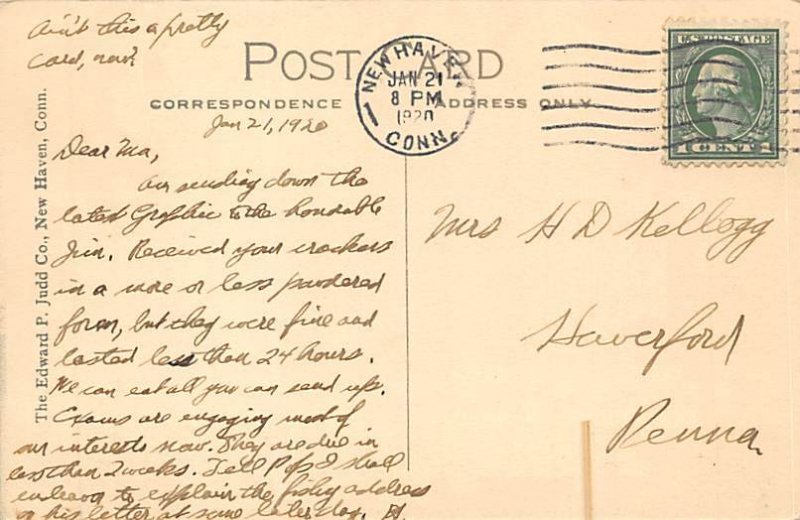 Ain't this a pretty
card, now?
POST CARD
NEW HAVEN
JAN 21
8 PM
1920
CONN.
U.S. POSTAGE
1 CENT 1
CORRESPONDENCE
ADDRESS ONLY
The Edward P. Judd Co., New Haven, Conn.
Jan 21, 1920
Dear Ma,
Am sending down the
latest Graphic to the honorable
Jim. Received your crackers
in a more or less powdered
form, but they were fine and
lasted less than 24 hours.
We can eat all you can send up.
Exams are engaging most of
our interests now. They are due in
less than 2 weeks. Tell Pops I shall
endeavor to explain the fishy address
on his letter at some later day.
Mrs H D Kellogg
Haverford
Penna.